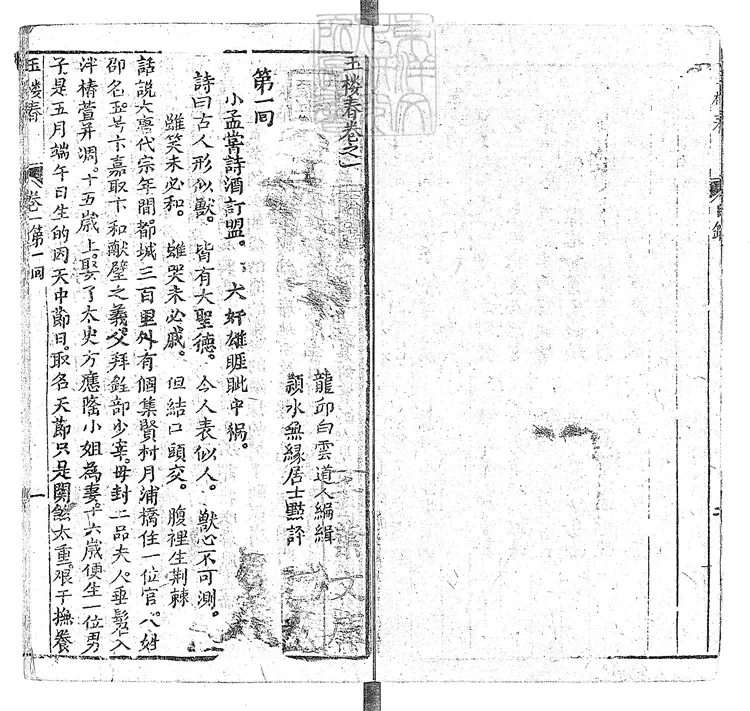 玉楼春卷之一
龍邱白雲道人編輯
潁水無縁居士㸃評
第一囬
小孟嘗詩酒訂盟。 大奸雄睚眦中禍。
詩曰古人形似獸。 皆有大聖德。 今人表似人。 獸心不可測。
雖笑未必和。 雖哭未必戚。 但結口頭交。 腹裡生荆棘
話説大唐代宗年間都城三百里外有個集賢村月浦橋住一位官人姓
邵名玉号卞嘉取卞和献璧之義。父拜銓部少宰。母封二品夫人。垂髫入
泮椿萱并凋。十五歲上。娶了太史方應隆小姐為妻。十六歲便生一位男
子是五月端午日生的因天中節日。取名天節只是関煞太重。艰于撫養
玉楼春
卷一第一囬
一